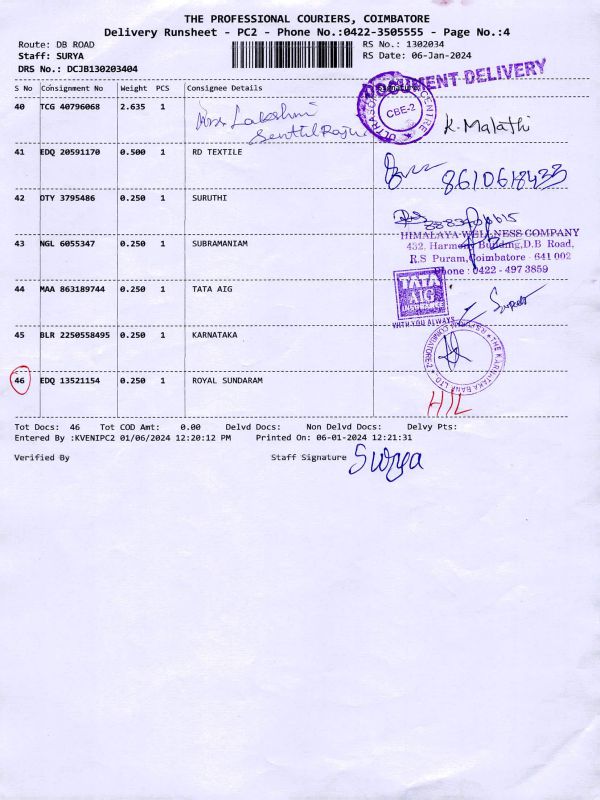 THE PROFESSIONAL COURIERS, COIMBATORE
Delivery Runsheet - PC2 - Phone No.:0422-3505555 - Page No.:4
Route: DB ROAD
RS No.: 1302034
Staff: SURYA
RS Date: 06-Jan-2024
DRS No.: DCJB130203404
DOCUMENT DELIVERY
S No Consignment No Weight PCS Consignee Details
40 TCG 40796068 2.635 1 Mrs Lakshmi
Senthil Raju
CENTRE
CBE-2
K. Malathi
41 EDQ 20591170 0.500 1 RD TEXTILE
8610618433
42 OTY 3795486 0.250 1 SURUTHI
43 NGL 6055347 0.250 1 SUBRAMANIAM
HIMALAYA WELLNESS COMPANY
432. Harmony Building,D.B Road,
R.S Puram,Coimbatore - 641 002
Phone : 0422 - 497 3859
44 MAA 863189744 0.250 1 TATA AIG
TATA
AIG
INSURANCE
WITH YOU ALWAYS
45 BLR 2250558495 0.250 1 KARNATAKA
THE KARNATAKA BANK LTD.
COIMBATORE-2
46 EDQ 13521154 0.250 1 ROYAL SUNDARAM
Tot Docs: 46 Tot COD Amt: 0.00 Delvd Docs: Non Delvd Docs: Delvy Pts:
Entered By :KVENIPC2 01/06/2024 12:20:12 PM Printed On: 06-01-2024 12:21:31
Verified By
Staff Signature Surya